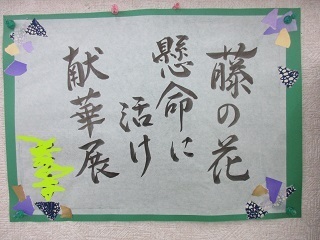 藤の花
懸命に
活け
献華展